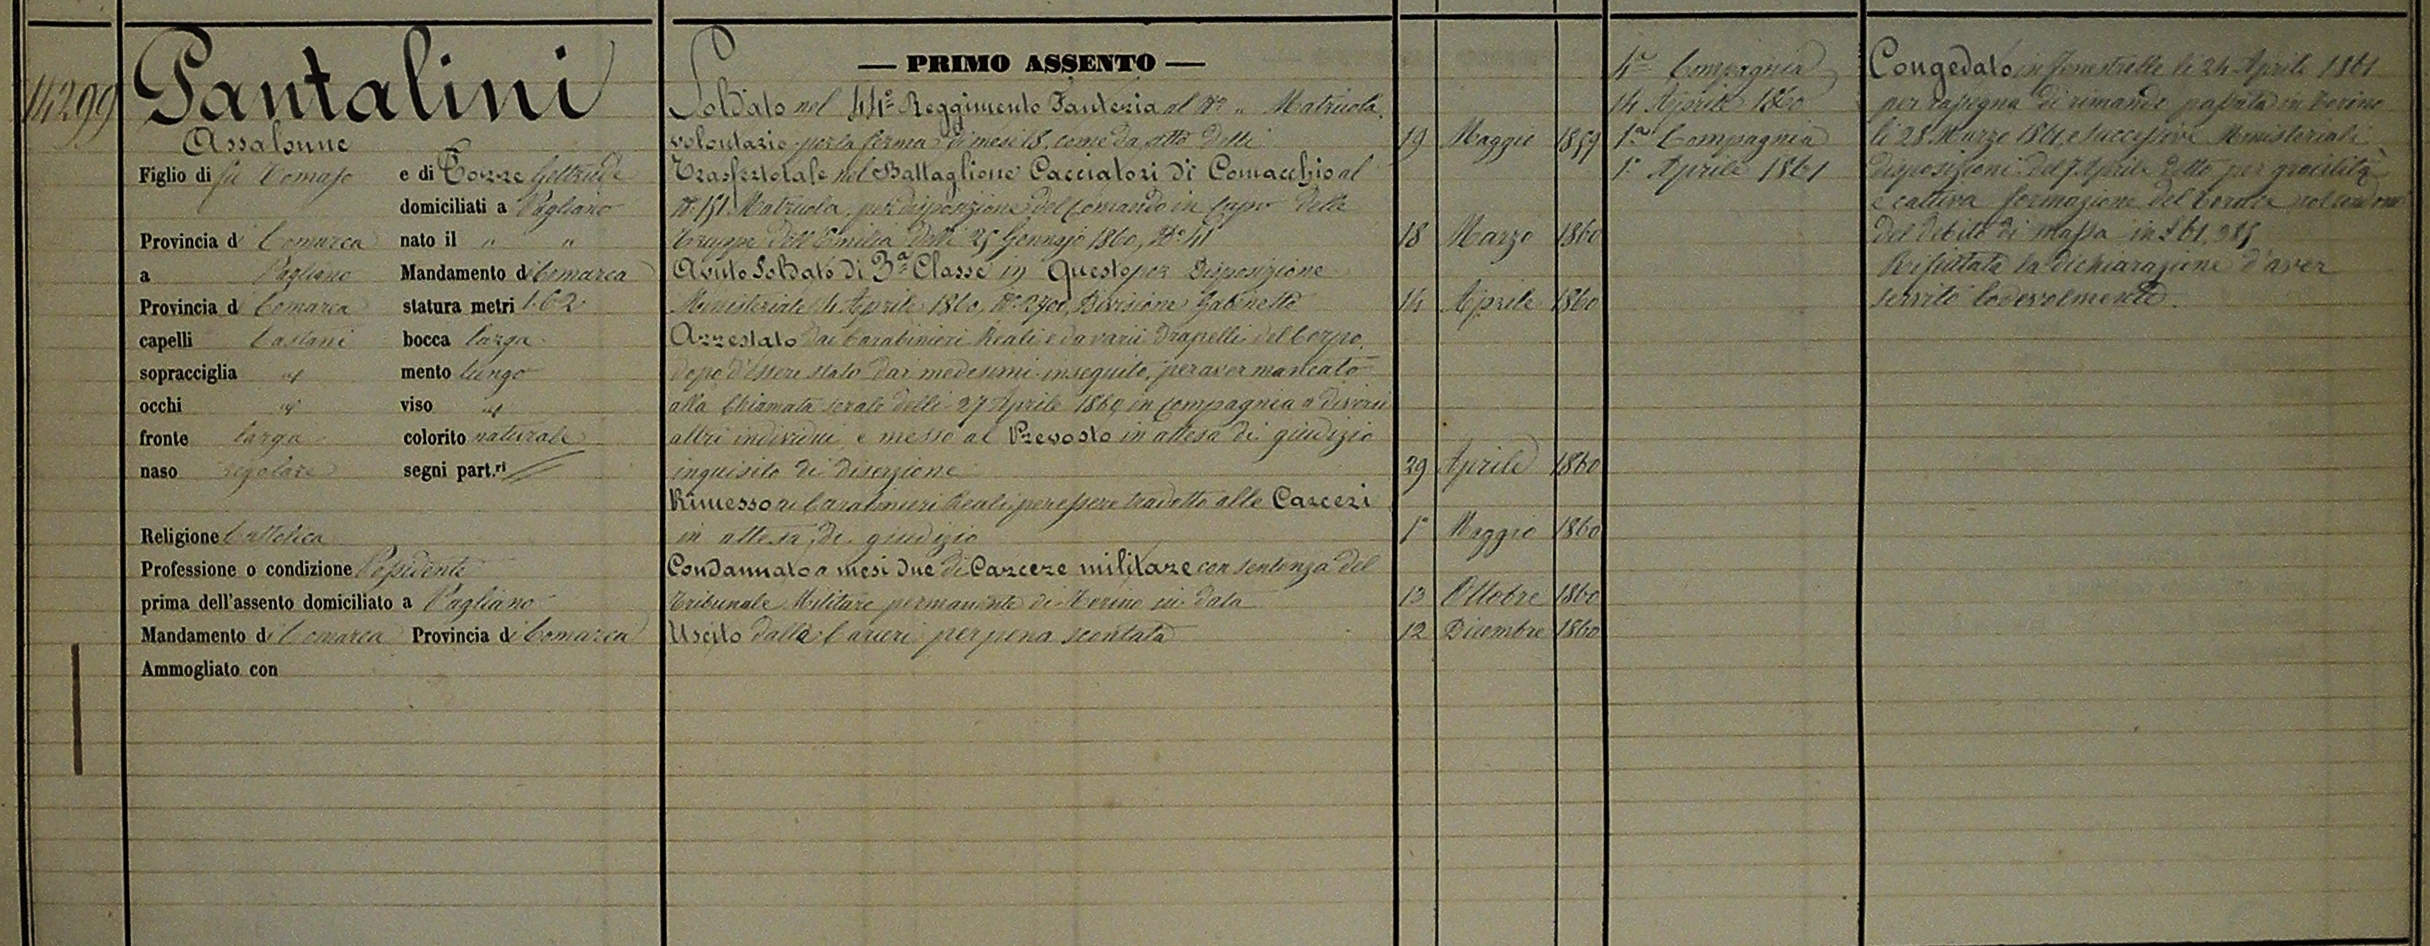 14299
Pantalini
Assalonne
Figlio di fu Tomaso e di Torre Geltrude
domiciliati a Pagliano
Provincia di Comarca nato il " "
a Pagliano Mandamento di Comarca
Provincia di Comarca statura metri 1.62
capelli Castani bocca larga
sopracciglia id mento lungo
occhi id viso id
fronte larga colorito naturale
naso regolare segni part.ri
Religione Cattolica
Professione o condizione Possidente
prima dell'assento domiciliato a Pagliano
Mandamento di Comarca Provincia di Comarca
Ammogliato con
— PRIMO ASSENTO —
Soldato nel 44° Reggimento Fanteria al N° " Matricola
volontario per la ferma di mesi 18, come da atto delli 19 Maggio 1859
Trasfertotale nel Battaglione Cacciatori di Comacchio al
N° 151 Matricola per disposizione del Comando in Capo delle
Truppe dell'Emilia delli 25 Gennajo 1860, N° 41 18 Marzo 1860
Avuto Soldato di 3a Classe in Questo per Disposizione
Ministeriale 4 Aprile 1860, N° 2900, Divisione Gabinetto 14 Aprile 1860
Arrestato dai Carabinieri Reali e da varii Drapelli del Corpo,
dopo d'essere stato dai medesimi inseguito, per aver mancato
alla Chiamata serale delli 27 Aprile 1860 in Compagnia a diversi
altri individui e messo al Prevosto in attesa di giudizio
inquisito di diserzione 29 Aprile 1860
Rimesso ai Carabinieri Reali per essere tradotto alle Carceri
in attesa di giudizio 1° Maggio 1860
Condannato a mesi due di Carcere militare con sentenza del
Tribunale Militare permanente di Torino in data 13 Ottobre 1860
Uscito dalle Carceri per pena scontata 12 Dicembre 1860
4a Compagnia
14 Aprile 1860
1a Compagnia
1° Aprile 1861
Congedato in Fenestrelle li 24 Aprile 1861
per rassegna di rimando passata in Torino
li 28 Marzo 1861, e successive Ministeriali
disposizioni del 7 Aprile detto per gracilità
e cattiva formazione del torace
del debito di massa in £ 61,985
Rifiutata la dichiarazione d'aver
servito lodevolmente.